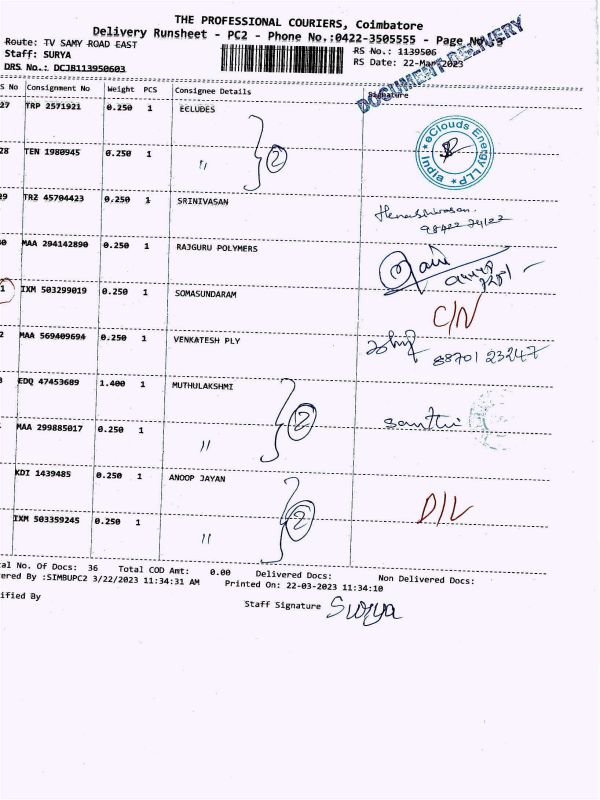 THE PROFESSIONAL COURIERS, Coimbatore
Delivery Runsheet - PC2 - Phone No.:0422-3505555 - Page No. 3
Route: TV SAMY ROAD EAST
RS No.: 1139506
Staff: SURYA
RS Date: 22-Mar-2023
DRS No.: DCJB113950603
DOCUMENT DELIVERY
S No Consignment No Weight PCS Consignee Details Signature
27 TRP 2571921 0.250 1 ECLUDES
2
eClouds Energy LLP India
28 TEN 1980945 0.250 1 "
29 TRZ 45704423 0.250 1 SRINIVASAN
30 MAA 294142890 0.250 1 RAJGURU POLYMERS
1 IXM 503299019 0.250 1 SOMASUNDARAM C/N
2 MAA 569409694 0.250 1 VENKATESH PLY 88701 23247
3 EDQ 47453609 1.400 1 MUTHULAKSHMI
2 santhi
MAA 299885017 0.250 1 "
KDI 1439485 0.250 1 ANOOP JAYAN
2 D/L
IXM 503359245 0.250 1 "
al No. Of Docs: 36 Total COD Amt: 0.00 Delivered Docs: Non Delivered Docs:
ered By :SIMBUPC2 3/22/2023 11:34:31 AM Printed On: 22-03-2023 11:34:10
ified By
Staff Signature Surya